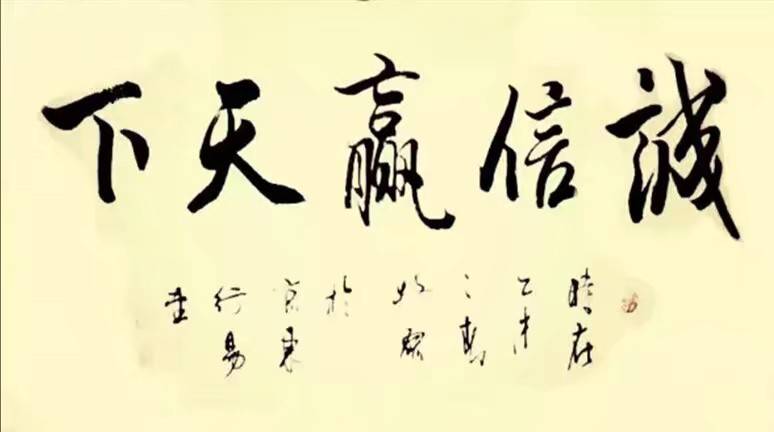 誠信贏天下
時在
乙未
之春
於
京東
行易
堂